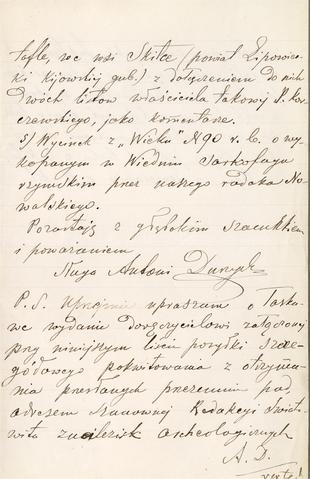 tafle, we wsi Skitce (powiat Lipowiec-
ki kijowskiej gub.) z dołączeniem do nich
dwóch listów właściciela takowej P. Kor-
czewskiego, jako komentarze.
5) Wycinek z „Wieku” N 90 r. b. o wy-
kopanym w Wiedniu Sarkofagu
rzymskim przez naszego rodaka No-
walskiego.
Pozostaję z głębokim szacunkiem
i poważaniem
Sługa Antoni
P. S. Uprzejmie upraszam o łaska-
we wydanie doręczycielowi załączonej
przy niniejszym liście posyłki szcze-
gółowego pokwitowania z otrzyma-
nia przesłanych przezemnie pod
adresem szanownej Redakcyi Świato-
wita znalezisk archeologicznych
A. D.
verte!